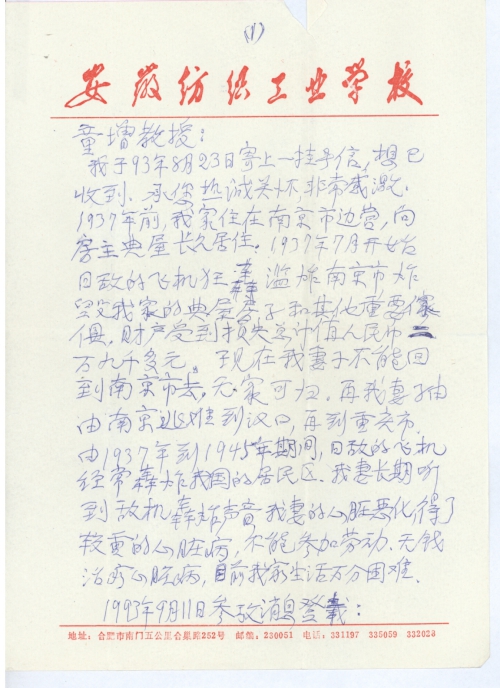 (1)
安徽纺织工业学校
童增教授：
我于93年8月23日寄上一挂号信，想已
收到、承您热诚关怀，非常感激、
1937年前，我家住在南京市边营，向
房主典屋长久居住。1937年7月开始
日敌的飞机狂轰滥炸南京市炸
毁我家的典屋房子和其他重要傢
俱，财产受到损失总计值人民币二
万九千多元。现在我妻子不能回
到南京市去，无家可归。再我妻
由南京逃难到汉口，再到重庆市．
由1937年到1945年期间，日敌的飞机
经常轰炸我国的居民区．我妻长期听
到敌机轰炸声音，我妻的心脏恶化得了
较重的心脏病，不能参加劳动．无钱
治疗心脏病，目前我家生活万分困难．
1993年9月11日参政消息登载：
地址：合肥市南门五公里合巢路252号 邮编：230051 电话：331197 335059 332028